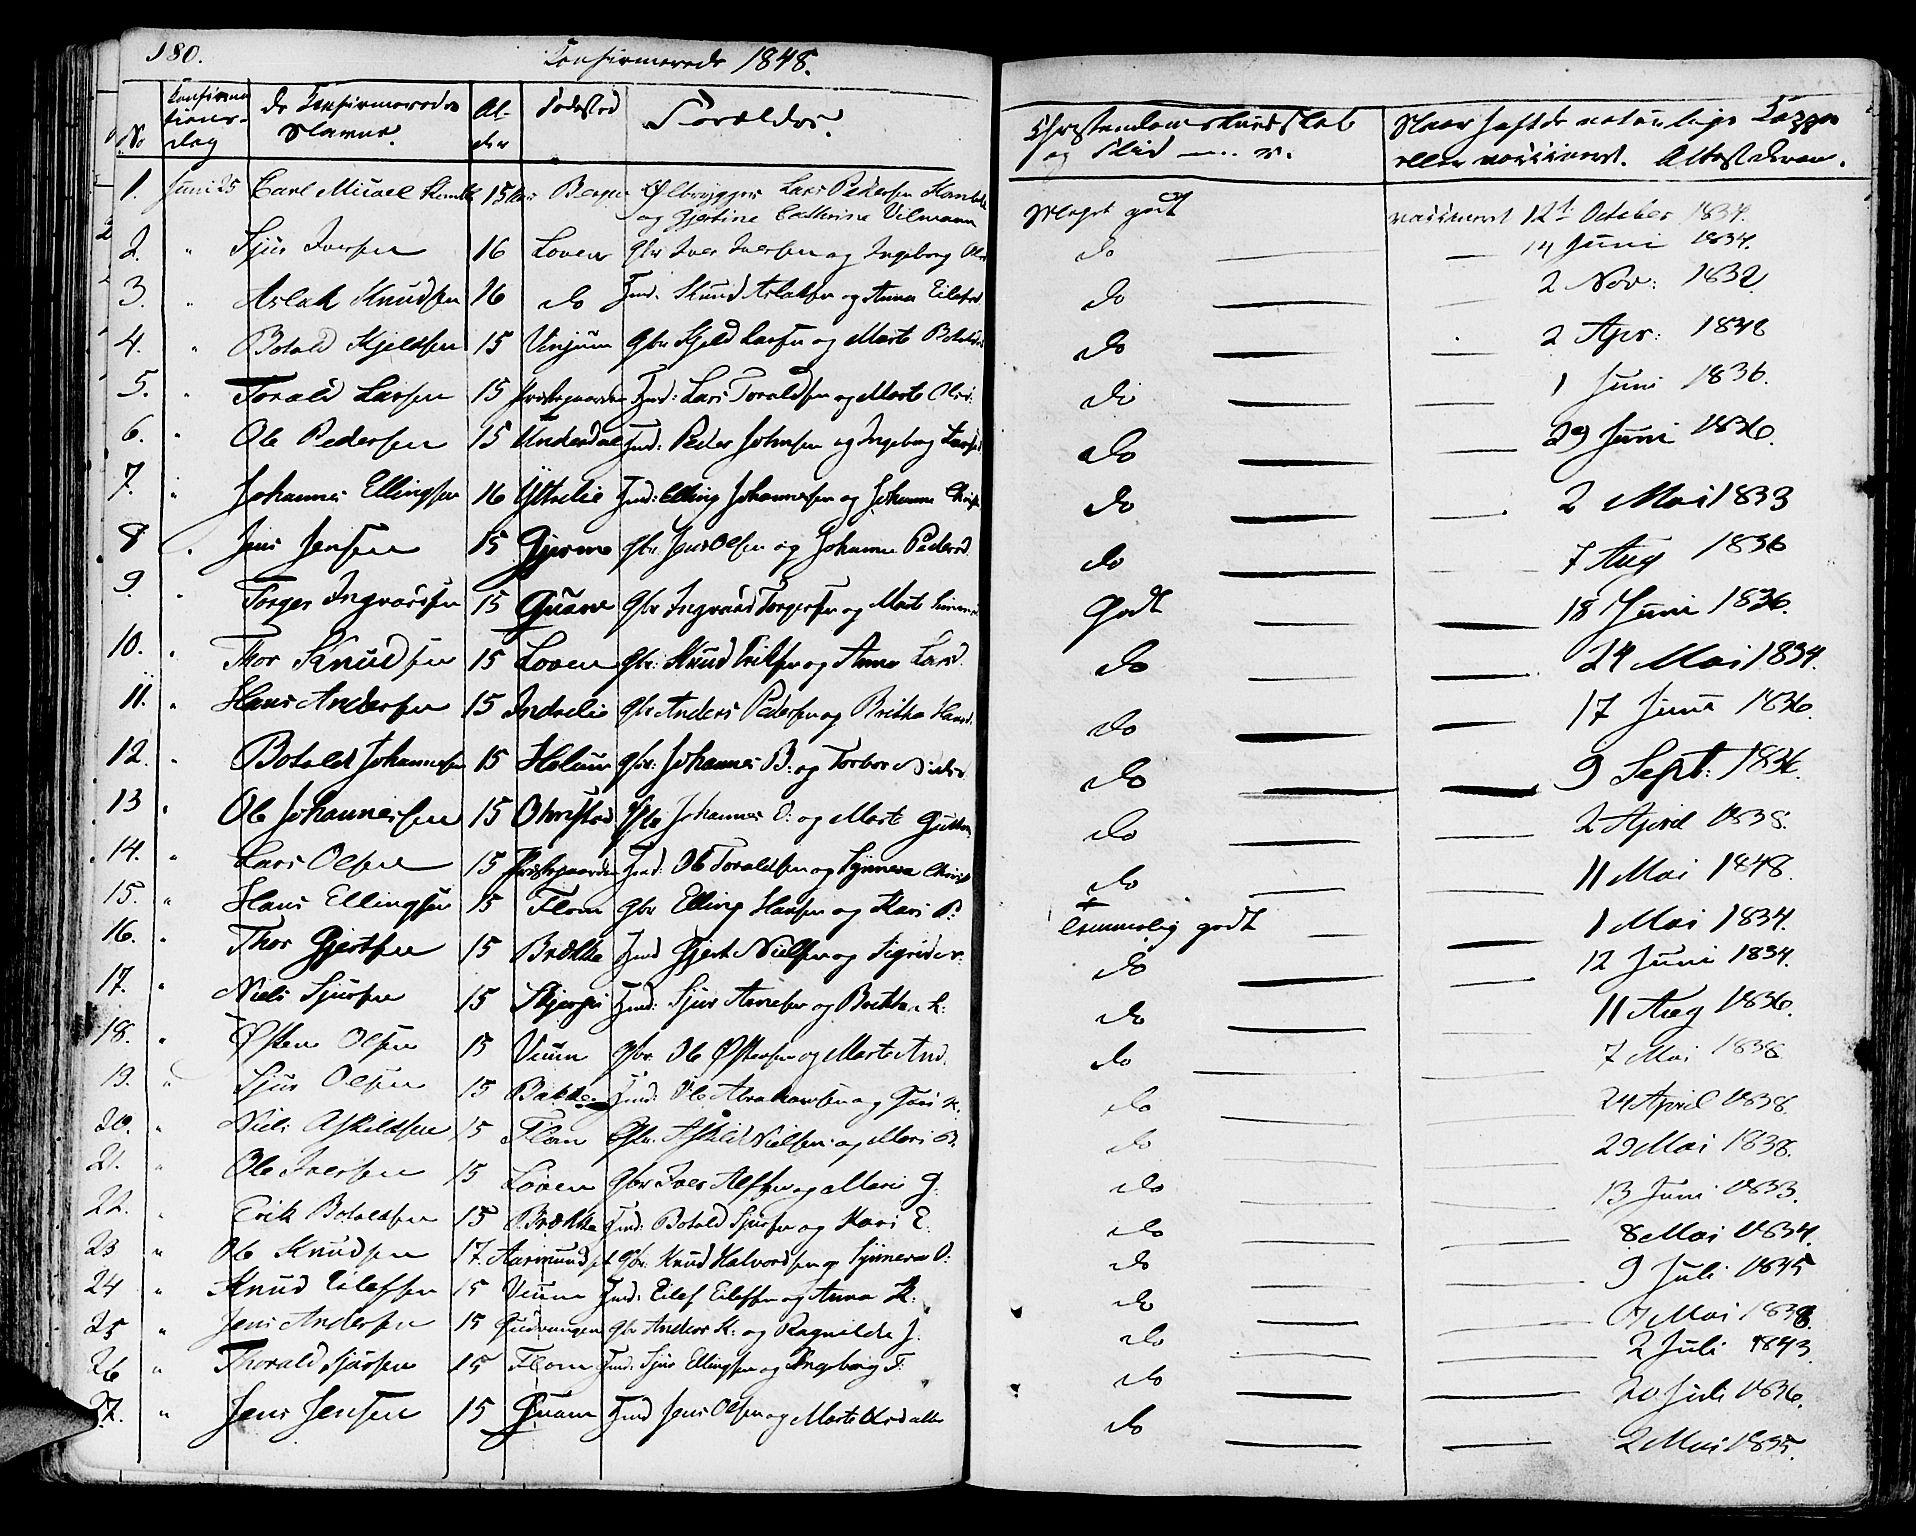 180. Confirmerede 1848.
No Confirmationsdag De Confirmeredes Navne. Alder Fødested Forældre. Christendomskundskab og Flid Naar havt de naturlige Kopper eller vaccineret. Attest derom.
1. Juni 25 Carl Micael 15 Bergen Ølbrygger Lars Pedersen
og Gjertine Cathrine Meget godt vaccineret 12t October 1834.
2. " Sjur Iversen 16 Loven Gbr Iver Iversen og Ingeborg do 14 Juni 1834.
3. " Aslak Knudsen 16 do Hmd. Knud Aslaksen og Anna Eilefsd do 2 Nov: 1832
4. " Botold Kjeldsen 15 Vinjum Gbr Kjeld Larsen og Marte do 2 Apr: 1848
5. " Torald Larsen 15 Præstegaarden Hmd: Lars Toraldsen og Marte do 1 Juni 1836.
6. " Ole Pedersen 15 Underdal Hmd: Peder Johnsen og Ingeborg do 29 Juni 1836.
7. " Johannes Ellingsen 16 Ytrelie Hmd: Elling Johannesen og Johanna do 2 Mai 1833
8 " Jens Jensen 15 Gjerme Gbr. Jens Olsen og Johanna Pedersd do 7 Aug 1836
9. " Torger Ingvaldsen 15 Qvam Gbr Ingvald Torgersen og Marte Godt 18 Juni 1836.
10. " Thor Knudsen 15 Loven Gbr: Knud Eriksen og Anna Larsd. do 24 Mai 1834.
11. " Hans Andersen 15 Indrelie Gbr Anders Pedersen og Britha Hansd. do 17 Juni 1836.
12. " Botold Johannesen 15 Holum Gbr: Johannes B: og Torbor do 9 Sept: 1836.
13 " Ole Johannessen 15 Johannes O: og Marte do 2 April 1838.
14. " Lars Olsen 15 Præstegaarden Hmd: Ole Toraldsen og Synneva do 11 Mai 1848.
15. " Hans Ellingsen 15 Flom Gbr Elling Hansen og Kari P: Temmelig godt 1 Mai 1834.
16. " Thor Gjertsen 15 Brække Hmd Gjert Nielsen og Sigrid do 12 Juni 1834.
17. " Niels Sjursen 15 Hmd: Sjur Arnesen og Britha K: do 11 Aug 1836.
18. " Østen Olsen 15 Veum Gbr. Ole Østensen og Marte And. do 7 Mai 1838
19. " Sjur Olsen 15 Bakke Hmd: Ole Abrahamsen og Guri K. do 24 April 1838.
20. " Niels Askildsen 15 Flom Gbr. Askild Nielsen og Mari do 23 Mai 1838.
21. " Ole Iversen 15 Loven Gbr Iver Alfsen og Mari G: do 13 Juni 1833.
22. " Erik Botoldsen 15 Brække Hmd: Botold Sjursen og Kari E. do 8 Mai 1834.
23 " Ole Knudsen 17. Gbr: Knud Halvordsen og Synneva O: do 9 Juli 1845
24 " Knud Eilefsen 15 Veum Hmd: Eilef Eilefsen og Anna K: do Mai 1838.
25 " Jens Andersen 15 Gudvangen Gbr Anders K: og Ragnilde J. do 2 Juli 1843.
26 " Thorald Sjursen 15 Flom Hmd: Sjur Ellingsen og Ingeborg T: do 20 Juli 1836.
27. " Jens Jensen 15 Qvam Hmd Jens Olsen og Marte do 2 Mai 1835.